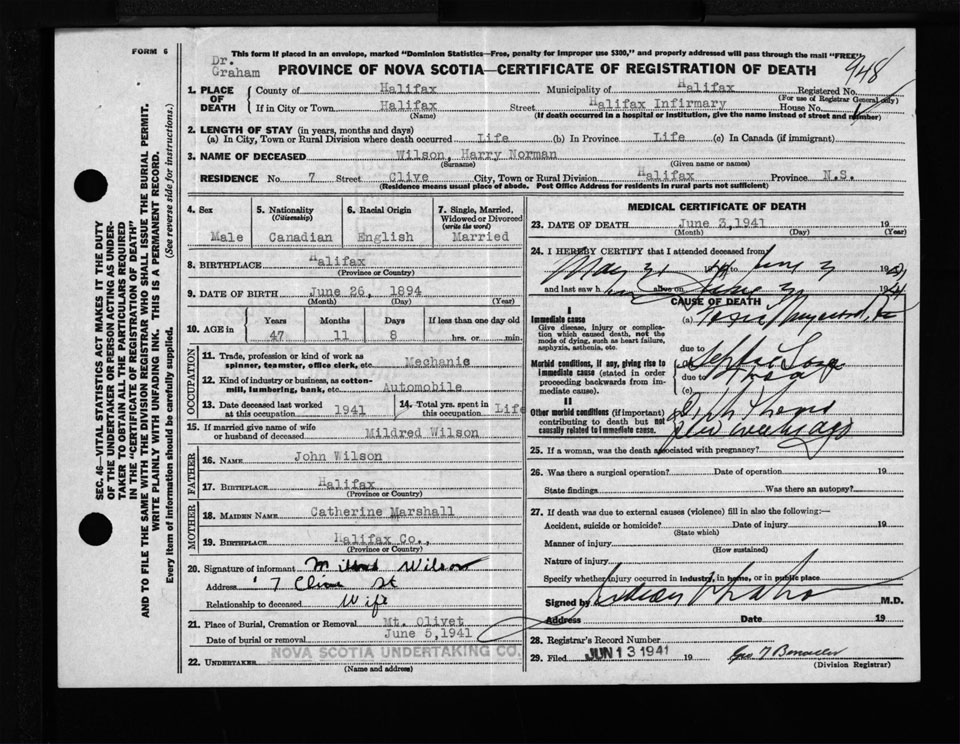 FORM 6
This form if placed in an envelope, marked "Dominion Statistics—Free, penalty for improper use $300," and properly addressed will pass through the mail "FREE"
Dr. Graham
PROVINCE OF NOVA SCOTIA—CERTIFICATE OF REGISTRATION OF DEATH
948
1. PLACE OF DEATH
County of Halifax Municipality of Halifax Registered No.
(For use of Registrar General only)
If in City or Town Halifax Street Halifax Infirmary House No.
(Name) (If death occurred in a hospital or institution, give the name instead of street and number)
2. LENGTH OF STAY (in years, months and days)
(a) In City, Town or Rural Division where death occurred Life (b) In Province Life (c) In Canada (if immigrant)
3. NAME OF DECEASED Wilson, Harry Norman
(Surname) (Given name or names)
RESIDENCE No. 7 Street Clive City, Town or Rural Division Halifax Province N.S.
(Residence means usual place of abode. Post Office Address for residents in rural parts not sufficient)
4. Sex 5. Nationality (Citizenship) 6. Racial Origin 7. Single, Married, Widowed or Divorced (write the word)
Male Canadian English Married
8. BIRTHPLACE Halifax
(Province or Country)
9. DATE OF BIRTH June 26, 1894
(Month) (Day) (Year)
10. AGE in Years Months Days If less than one day old
47 11 8 hrs. or min.
OCCUPATION
11. Trade, profession or kind of work as spinner, teamster, office clerk, etc. Mechanic
12. Kind of industry or business, as cotton-mill, lumbering, bank, etc. Automobile
13. Date deceased last worked at this occupation 1941 14. Total yrs. spent in this occupation Life
15. If married give name of wife or husband of deceased Mildred Wilson
FATHER
16. NAME John Wilson
17. BIRTHPLACE Halifax
(Province or Country)
MOTHER
18. MAIDEN NAME Catherine Marshall
19. BIRTHPLACE Halifax Co.,
(Province or Country)
20. Signature of informant Mildred Wilson
Address 7 Clive St
Relationship to deceased Wife
21. Place of Burial, Cremation or Removal Mt. Olivet
Date of burial or removal June 5, 1941
22. UNDERTAKER NOVA SCOTIA UNDERTAKING CO.
(Name and address)
MEDICAL CERTIFICATE OF DEATH
23. DATE OF DEATH June 3, 1941 19
(Month) (Day) (Year)
24. I HEREBY CERTIFY that I attended deceased from
May 31 19 to June 3 1941
and last saw h im alive on June 3 1941
CAUSE OF DEATH
I
Immediate cause (a) Toxic
Give disease, injury or complication which caused death, not the mode of dying, such as heart failure, asphyxia, asthenia, etc.
due to
Morbid conditions, if any, giving rise to immediate cause (stated in order proceeding backwards from immediate cause).
(b) Septic
due to
(c)
II
Other morbid conditions (if important) contributing to death but not causally related to immediate cause.
few weeks ago
25. If a woman, was the death associated with pregnancy?
26. Was there a surgical operation? Date of operation 19
State findings Was there an autopsy?
27. If death was due to external causes (violence) fill in also the following:—
Accident, suicide or homicide? Date of injury 19
(State which)
Manner of injury
(How sustained)
Nature of injury
Specify whether injury occurred in industry, in home, or in public place
Signed by Graham M.D.
Address Date 19
28. Registrar's Record Number
29. Filed JUN 13 1941 19
(Division Registrar)
SEC. 46—VITAL STATISTICS ACT MAKES IT THE DUTY
OF THE UNDERTAKER OR PERSON ACTING AS UNDER-
TAKER TO OBTAIN ALL THE PARTICULARS REQUIRED
IN THE "CERTIFICATE OF REGISTRATION OF DEATH"
AND TO FILE THE SAME WITH THE DIVISION REGISTRAR WHO SHALL ISSUE THE BURIAL PERMIT.
WRITE PLAINLY WITH UNFADING INK. THIS IS A PERMANENT RECORD.
Every item of information should be carefully supplied. (See reverse side for instructions.)